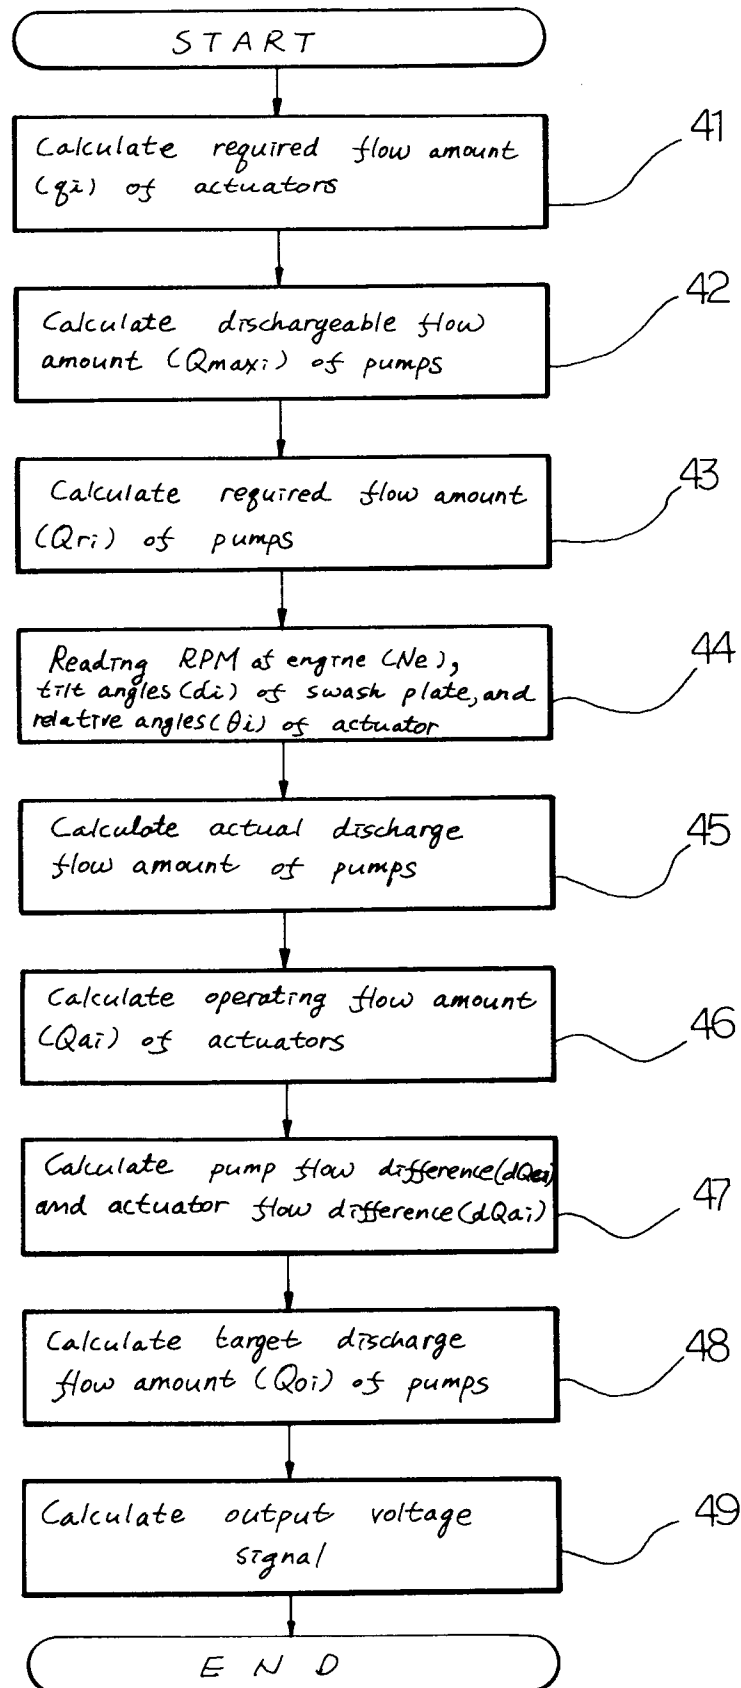 START
Calculate required flow amount
(qi) of actuators
41
Calculate dischargeable flow
amount (Qmaxi) of pumps
42
Calculate required flow amount
(Qri) of pumps
43
Reading RPM of engine (Ne),
tilt angles (di) of swash plate, and
relative angles (θi) of actuator
44
Calculate actual discharge
flow amount of pumps
45
Calculate operating flow amount
(Qai) of actuators
46
Calculate pump flow difference (dQei)
and actuator flow difference (dQai)
47
Calculate target discharge
flow amount (Qoi) of pumps
48
Calculate output voltage
signal
49
END